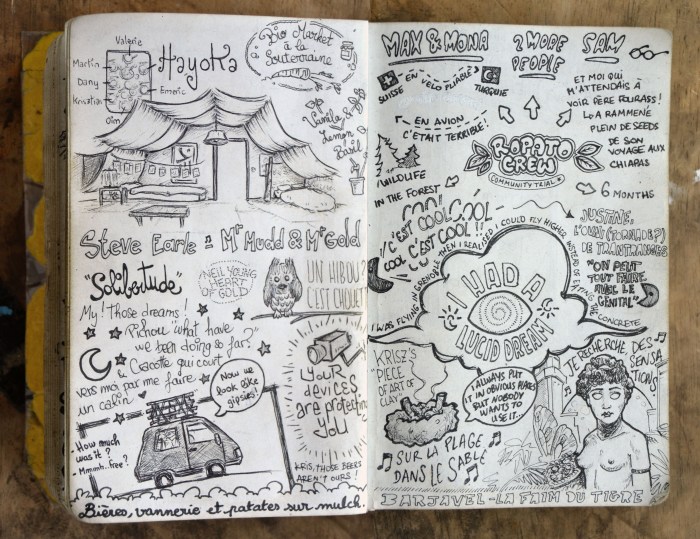 Valerie
Martin
Dany
Kristian
Emeric
Oim
Hayoka
Bio Market
à la
Souterraine
Vanilla &
Lemon
Basil
Steve Earle ♫ Mr Mudd & Mr Gold
"Solibertude"
NEIL YOUNG
HEART
OF GOLD
UN HIBOU?
C'EST CHOUET
My! those dreams!
Pichou "what have
we been doing so far?"
& Cacotte qui court
vers moi par me faire
un calin
Now we
look like
gipsies!
How much
was it?
- Mmmh..free?
YOUR
devices
are protecting
you
KRIS, THOSE BEERS
AREN'T OURS!
Bières, vannerie et patates sur mulch.
MAX & MONA
2 MORE
PEOPLE
SAM
SUISSE
EN VELO PLIABLE
TURQUIE
EN AVION
C'ETAIT TERRIBLE!
ET MOI QUI
M'ATTENDAIS À
VOIR PÈRE FOURASS!
L●A RAMMENÉ
PLEIN DE SEEDS
DE SON
VOYAGE AUX
CHIAPAS
ROPATO
CREW
COMMUNITY TRIAL
6 MONTHS
WILDLIFE
IN THE FOREST
COOL COOL
C'EST COOL
COOL C'EST COOL!!
JUSTINE,
DE TRANTRANTRAN
"ON PEUT
TOUT FAIRE
AVEC LE
GÉNITAL"
I WAS FLYING IN GRENOBLE THEN I REALISED I COULD FLY HIGHER INSTEAD OF EATING THE CONCRETE
I HAD A
LUCID DREAM
KRISZ'S
"PIECE
OF ART OF
CLAY"
I ALWAYS PUT
IT IN OBVIOUS PLACES
BUT NOBODY
WANTS TO
USE IT...
JE RECHERCHE, DES
SENSA
TIONS!
SUR LA PLAGE
DANS LE SABLE
BARJAVEL - LA FAIM DU TIGRE